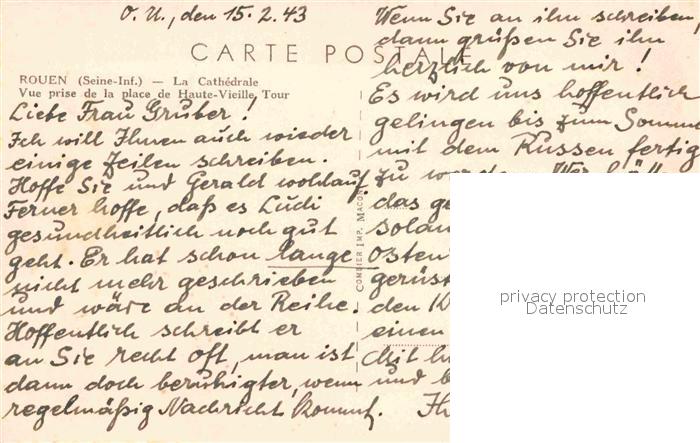 O. U., den 15.2.43
CARTE POSTALE
ROUEN (Seine-Inf.) — La Cathédrale
Vue prise de la place de Haute-Vieille, Tour
Liebe Frau Gruber!
Ich will Ihnen auch wieder
einige Zeilen schreiben.
Hoffe Sie und Gerald wohlauf.
Ferner hoffe, daß es Ludi
gesundheitlich noch gut
geht. Er hat schon lange
nicht mehr geschrieben
und wäre an der Reihe.
Hoffentlich schreibt er
an Sie recht oft, man ist
dann doch beruhigter, wenn
regelmäßig Nachricht kommt.
COMBIER IMP. MACON
Wenn Sie an ihn schreiben,
dann grüßen Sie ihn
herzlich von mir!
Es wird uns hoffentlich
gelingen bis zum Somm
mit dem Russen fertig
zu
das ge
solan
osten
gerüst
den
einen
Mit h
und b
Ih
privacy protection
Datenschutz